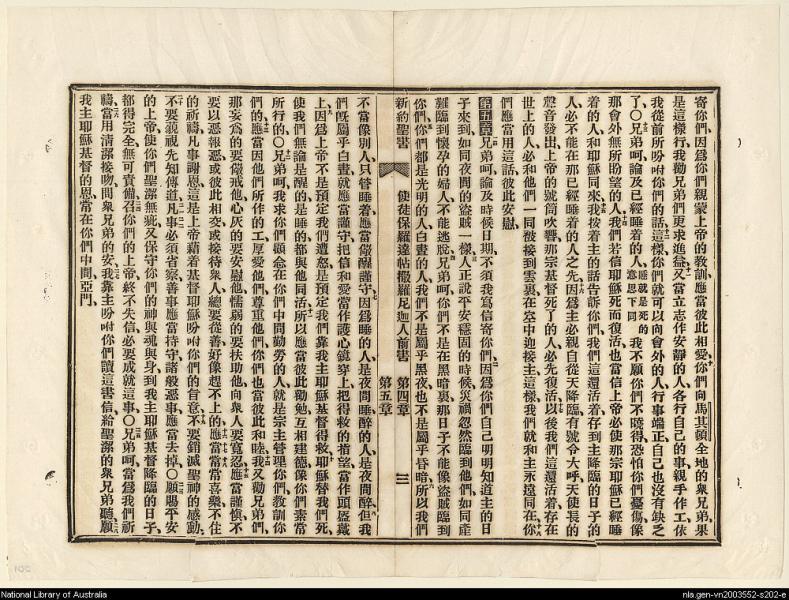 寄你們因爲你們親蒙上帝的教訓應當彼此相愛你們向馬其頓全地的衆兄弟果
是這樣行我勸兄弟們更求進益又當立志作安靜的人各行自己的事親手作工依
我從前所吩咐你們的話這樣你們就可以向會外的人行事端正自己也沒有缺乏
了〇兄弟呵論及已經睡着的人睡就是死的意思下同我不願你們不曉得恐怕你們憂傷像
那會外無所盼望的人我們若信耶穌死而復活也當信上帝必使那宗耶穌已經睡
着的人和耶穌同來我按着主的話告訴你們我們這還活着存到主降臨的日子的
人必不能在那已經睡着的人之先因爲主必親自從天降臨有號令大呼天使長的
聲音發出上帝的號筒吹響那宗基督死了的人必先復活以後我們這還活着存在
世上的人必和他們一同被接到雲裏在空中迎接主這樣我們就和主永遠同在你
們應當用這話彼此安慰
第五章兄弟呵論及時候日期不須我寫信寄你們因爲你們自己明明知道主的日
子來到如同夜間的盜賊一樣人正說平安穩固的時候災禍忽然臨到他們如同產
難臨到懷孕的婦人不能逃脫兄弟呵你們不是在黑暗裏那日子不能像盜賊臨到
你們你們都是光明的人白晝的人我們不是屬乎黑夜也不是屬乎昏暗所以我們
新約聖書 使徒保羅達帖撒羅尼迦人前書 第四章 第五章 三
不當像別人只管睡着應當儆醒謹守因爲睡的人是夜間睡醉的人是夜間醉但我
們旣屬乎白晝就應當謹守把信和愛當作護心鏡穿上把得救的指望當作頭盔戴
上因爲上帝不是預定我們遭怒是預定我們靠我主耶穌基督得救耶穌替我們死
使我們無論是醒的是睡的都與他同活所以應當彼此勸勉互相建德像你們素常
所行的〇兄弟呵我求你們顧念在你們中間勤勞的人就是宗主管理你們敎訓你
們的應當因他們所作的工厚愛他們尊重他們你們也當彼此和睦我又勸兄弟們
那妄爲的要儆戒他心灰的要安慰他懦弱的要扶助他向衆人要寬忍應當謹愼不
要以惡報惡或彼此相交或接待衆人總要從善好像趕不上的應當常常喜樂不住
的祈禱凡事謝恩這是上帝藉着基督耶穌吩咐你們的旨意不要銷滅聖神的感動
不要藐視先知傳道凡事必須省察善事應當持守諸般惡事應當去掉〇願賜平安
的上帝使你們聖潔無疵又保守你們的神與魂與身到我主耶穌基督降臨的日子
都得完全無可責備召你們的上帝終不失信必要成就這事〇兄弟呵當爲我們祈
禱當用清潔接吻問衆兄弟的安我靠主吩咐你們讀這書信給聖潔的衆兄弟聽願
我主耶穌基督的恩常在你們中間亞門
National Library of Australia
nla.gen-vn2003552-s202-e